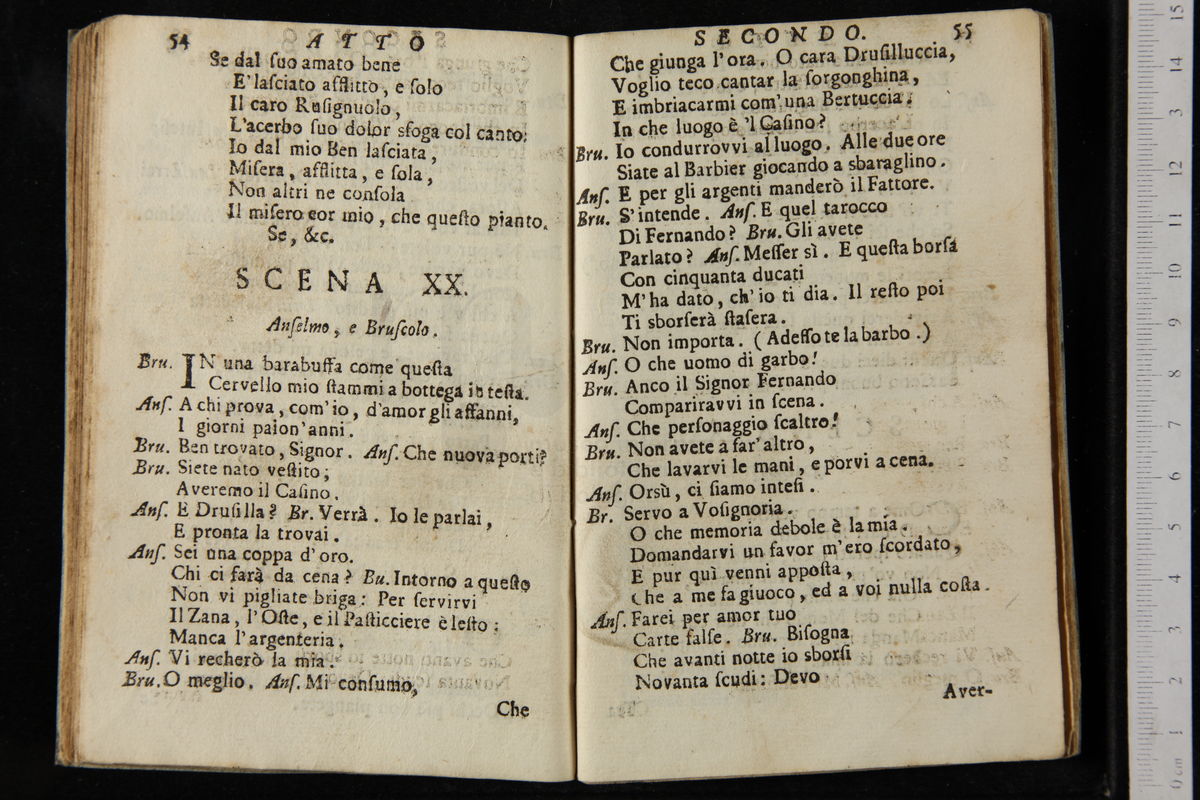 54 ATTO
Se dal ſuo amato bene
E' laſciato afflitto, e ſolo
Il caro Ruſignuolo,
L'acerbo ſuo dolor sfoga col canto:
Io dal mio Ben laſciata,
Miſera, afflitta, e ſola,
Non altri ne conſola
Il miſero cor mio, che queſto pianto.
Se, &c.
SCENA XX.
Anſelmo, e Bruſcolo.
Bru. IN una barabuffa come queſta
Cervello mio ſtammi a bottega in teſta.
Anſ. A chi prova, com'io, d'amor gli affanni,
I giorni paion'anni.
Bru. Ben trovato, Signor. Anſ. Che nuova porti?
Bru. Siete nato veſtito;
Averemo il Caſino.
Anſ. E Druſilla? Br. Verrà. Io le parlai,
E pronta la trovai.
Anſ. Sei una coppa d'oro.
Chi ci farà da cena? Bu. Intorno a queſto
Non vi pigliate briga: Per ſervirvi
Il Zana, l'Oſte, e il Paſticciere è leſto:
Manca l'argenteria.
Anſ. Vi recherò la mia.
Bru. O meglio. Anſ. Mi conſumo,
Che
SECONDO. 55
Che giunga l'ora. O cara Druſilluccia,
Voglio teco cantar la ſorgonghina,
E imbriacarmi com'una Bertuccia.
In che luogo è 'l Caſino?
Bru. Io condurrovvi al luogo. Alle due ore
Siate al Barbier giocando a sbaraglino.
Anſ. E per gli argenti manderò il Fattore.
Bru. S'intende. Anſ. E quel tarocco
Di Fernando? Bru. Gli avete
Parlato? Anſ. Meſſer sì. E queſta borſa
Con cinquanta ducati
M'ha dato, ch'io ti dia. Il reſto poi
Ti sborſerà ſtaſera.
Bru. Non importa. (Adeſſo te la barbo.)
Anſ. O che uomo di garbo!
Bru. Anco il Signor Fernando
Compariravvi in ſcena.
Anſ. Che perſonaggio ſcaltro!
Bru. Non avete a far'altro,
Che lavarvi le mani, e porvi a cena.
Anſ. Orsù, ci ſiamo inteſi.
Br. Servo a Voſignoria.
O che memoria debole è la mia.
Domandarvi un favor m'ero ſcordato,
E pur quì venni appoſta,
Che a me fa giuoco, ed a voi nulla coſta.
Anſ. Farei per amor tuo
Carte falſe. Bru. Biſogna
Che avanti notte io sborſi
Novanta ſcudi: Devo
Aver-
0 cm 1 2 3 4 5 6 7 8 9 10 11 12 13 14 15